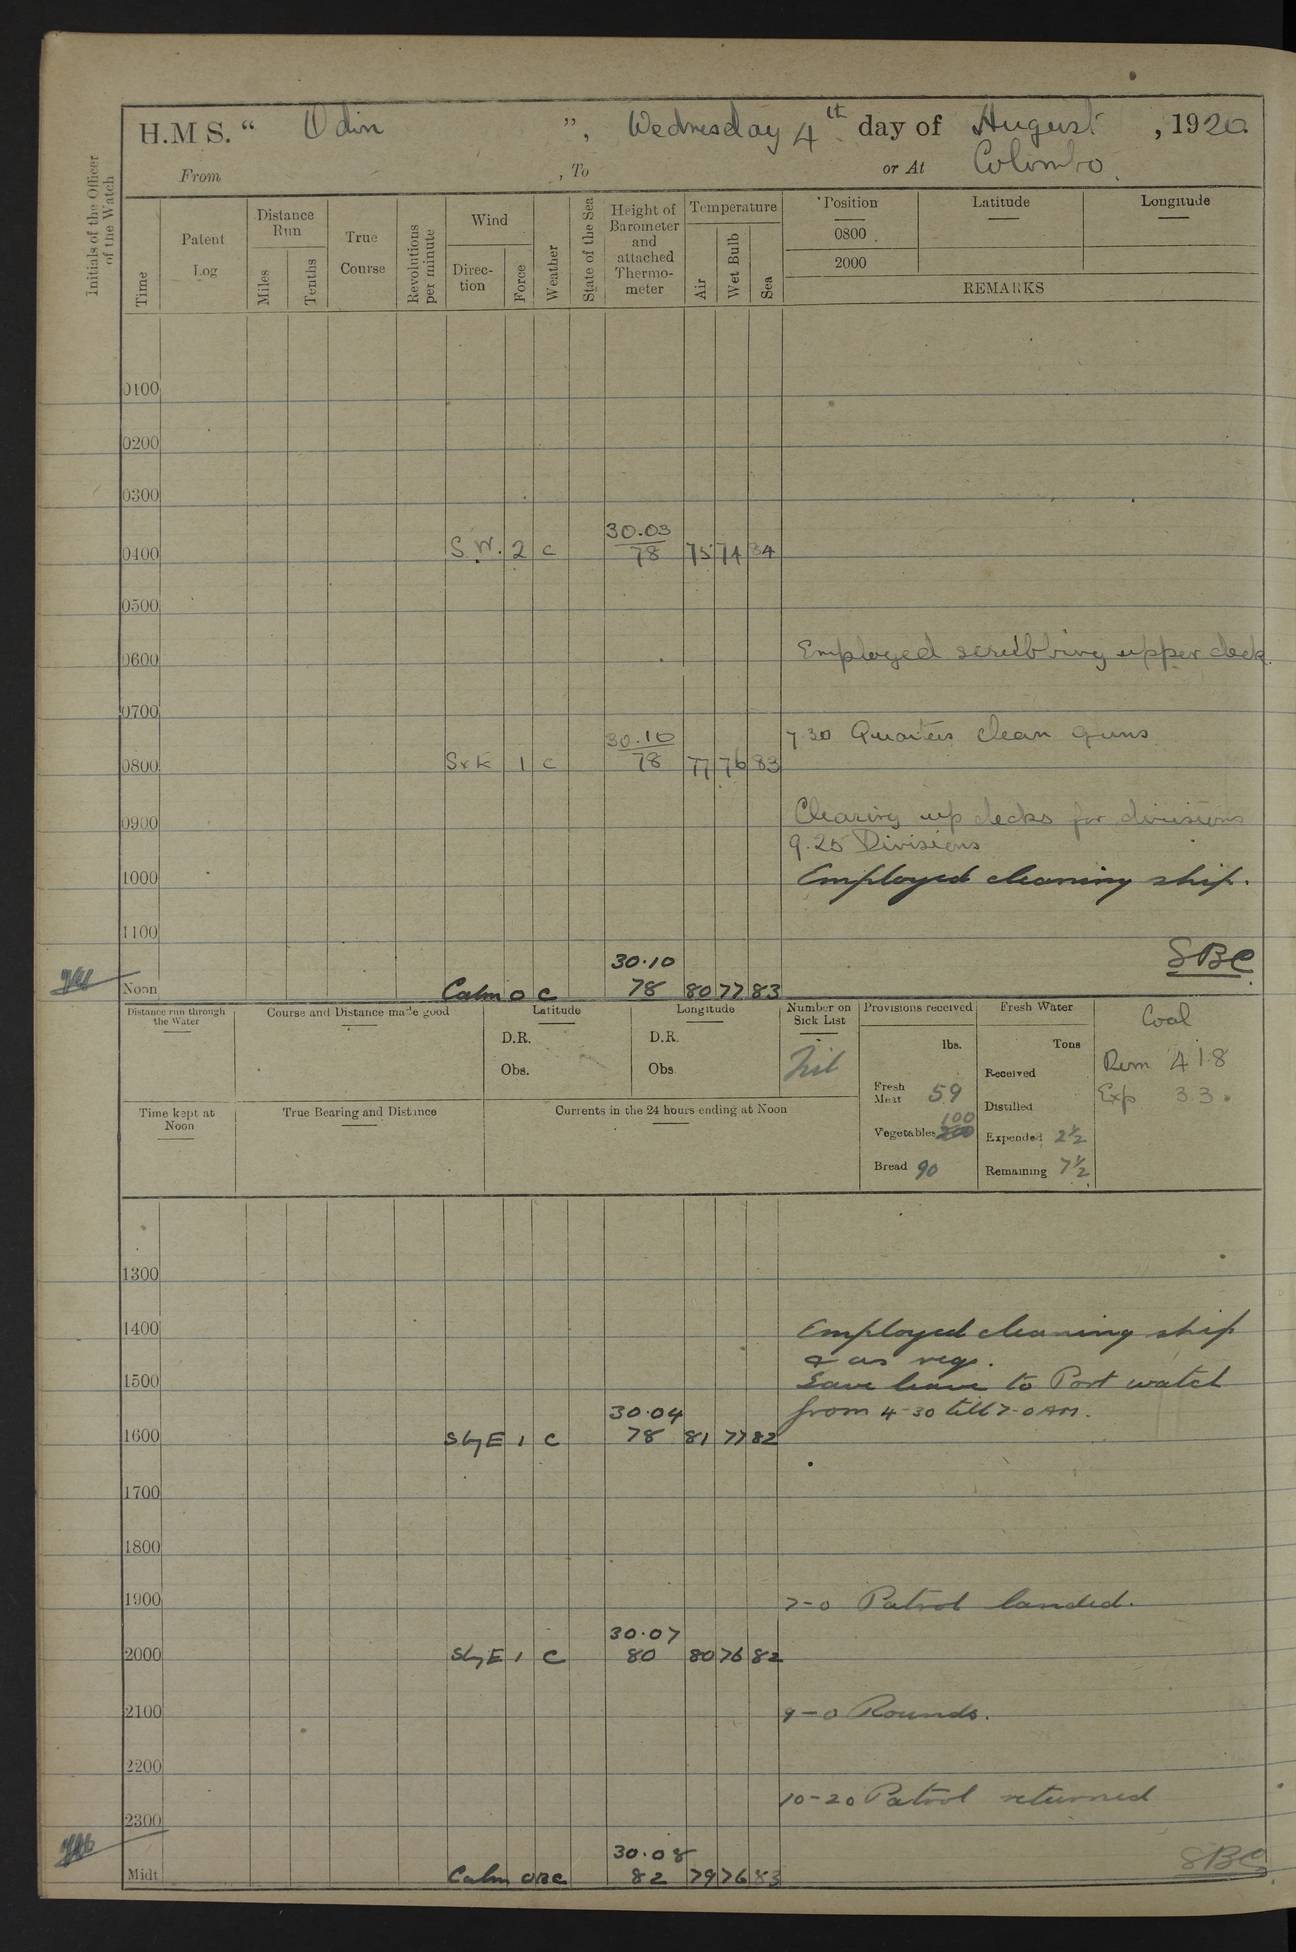 H.M S. “ Odin ”, Wednesday 4th day of August, 1920.
From , To or At Colombo.
Initials of the Officer of the Watch
Time
Patent Log
Distance Run
Miles
Tenths
True Course
Revolutions per minute
Wind
Direction
Force
Weather
State of the Sea
Height of Barometer and attached Thermometer
Temperature
Air
Wet Bulb
Sea
Position Latitude Longitude
0800
2000
REMARKS
0100
0200
0300
30.03
0400 S W. 2 c 78 75 74 84
0500
0600 Employed scrubbing upper deck.
0700
30.10 7.30 Quarters clean guns
0800 1 c 78 77 76 83
Clearing up decks for divisions
0900
9.25 Divisions
1000 Employed cleaning ship.
1100
SBC
30.10
Noon Calm 0 C 78 80 77 83
Distance run through the Water
Course and Distance made good
Latitude
D.R.
Obs.
Longitude
D.R.
Obs
Number on Sick List
Nil
Provisions received
lbs.
Fresh Meat 59
100
Vegetables 200
Bread 90
Fresh Water
Tons
Received
Distilled
Expended 2½
Remaining 7½
Coal
Rem 41.8
Exp 3.3.
Time kept at Noon
True Bearing and Distance
Currents in the 24 hours ending at Noon
1300
1400 Employed cleaning ship
& as req.
1500 Gave leave to Port watch
30.04 from 4-30 till 7-0 AM.
1600 SbyE 1 C 78 81 77 82
1700
1800
1900 7-0 Patrol landed.
30.07
2000 SbyE 1 C 80 80 76 82
2100 9-0 Rounds.
2200
10-20 Patrol returned
2300
30.08
Midt Calm 0 BC 82 79 76 83
SBC